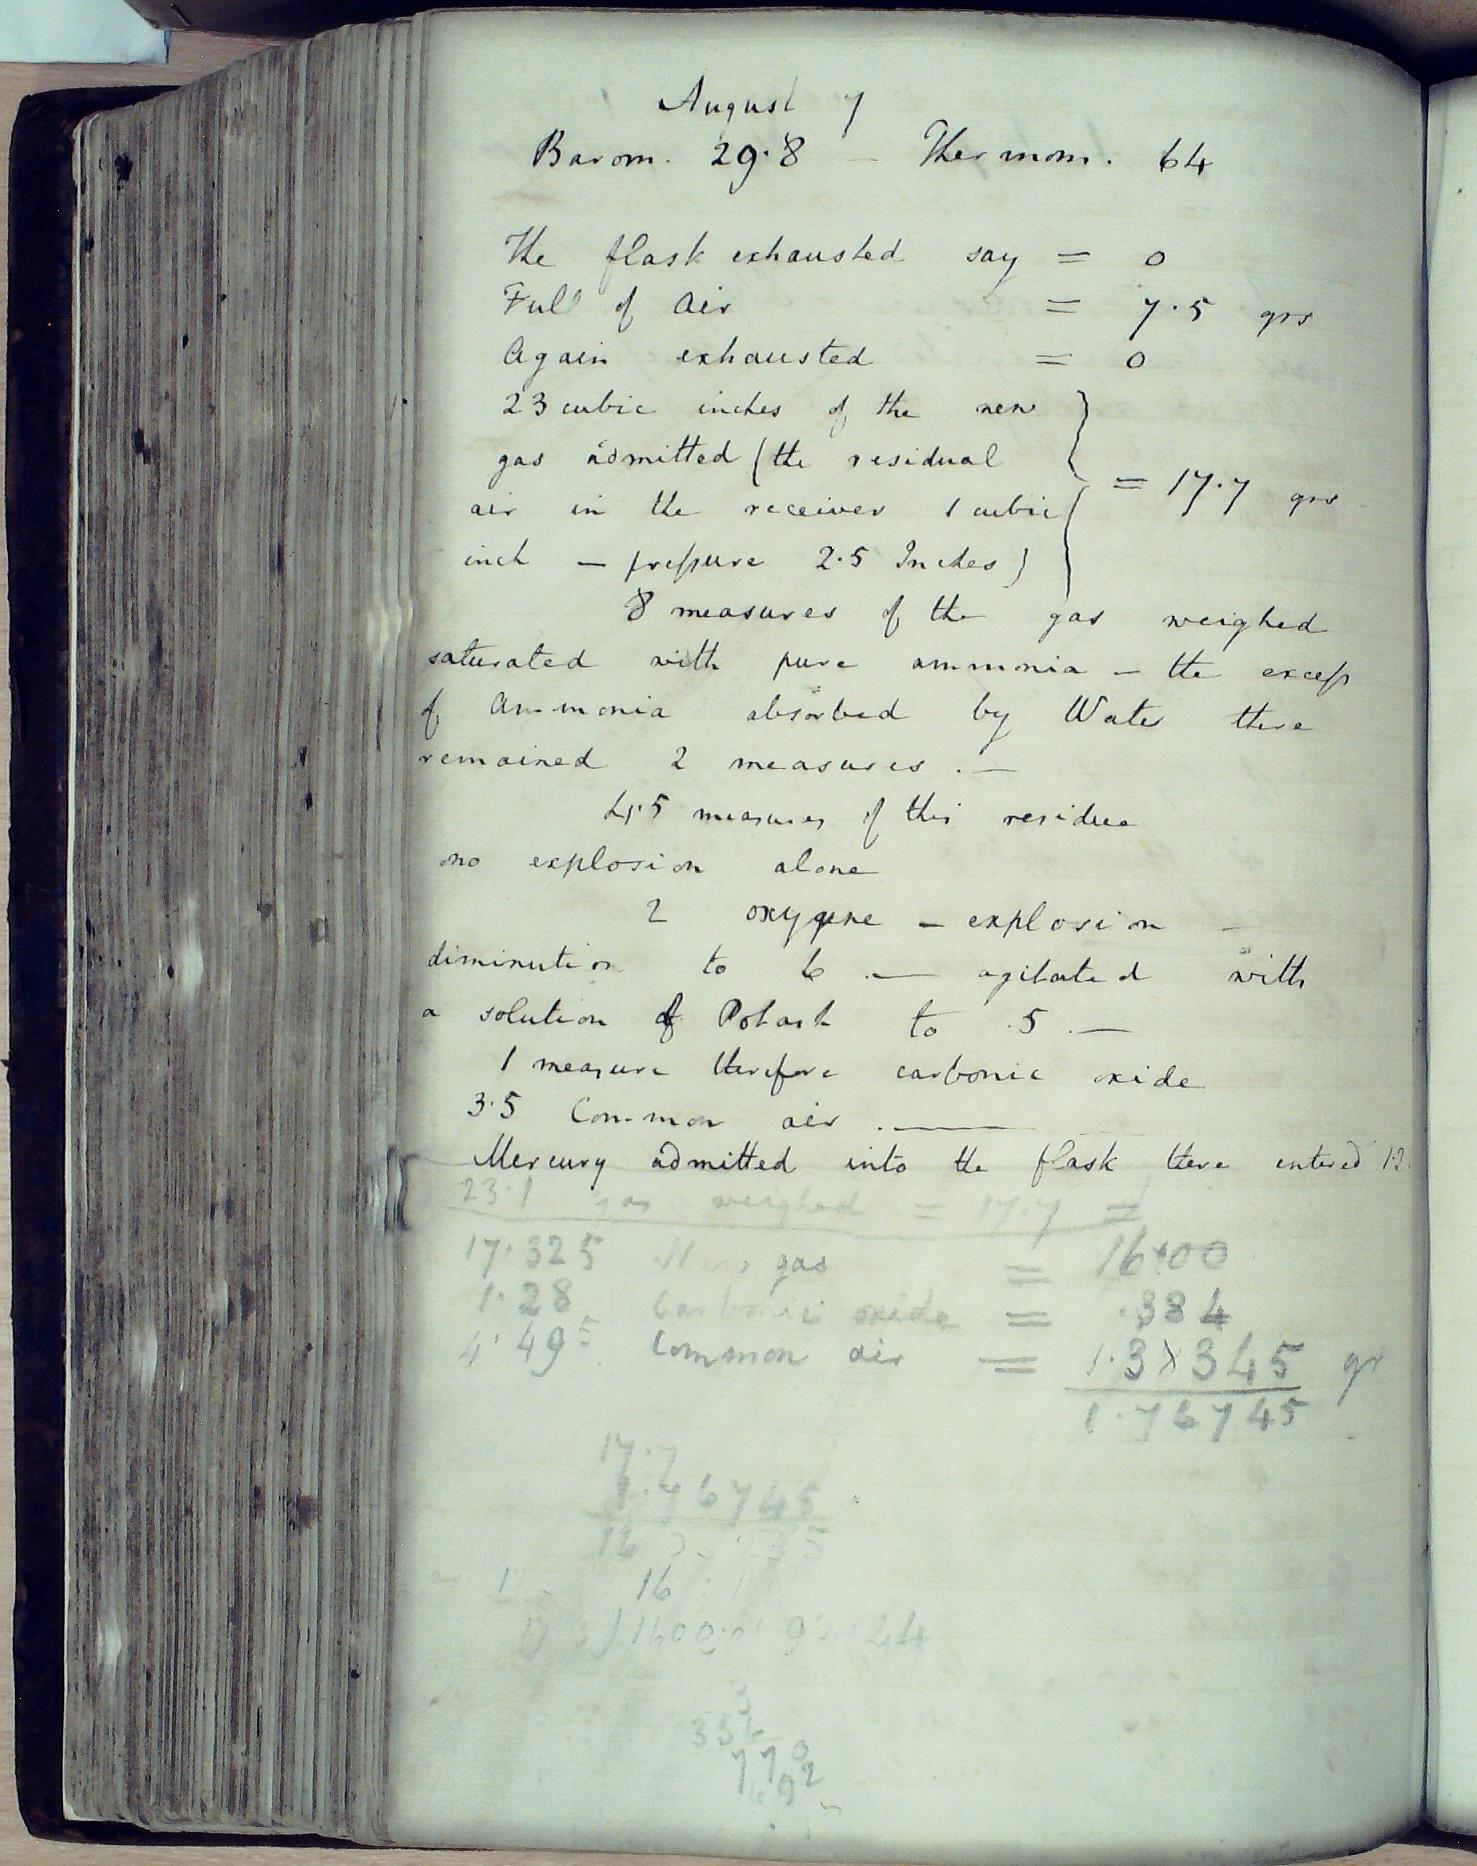 August 7
Barom. 29.8 – Thermom. 64
The flask exhausted say = 0
Full of air = 7.5 grs
Again exhausted = 0
23 cubic inches of the new
gas admitted (the residual
air in the receiver 1 cubic
inch – pressure 2.5 Inches)
= 17.7 grs
8 measures of the gas weighed
saturated with pure ammonia – the excess
of Ammonia absorbed by Water there
remained 2 measures. —
4.5 measures of this residue
no explosion alone
2 oxygene – explosion –
diminution to 6 . — agitated with
a solution of Potash to .5 . —
1 measure therefore carbonic oxide
3.5 Common air . ——
Mercury admitted into the flask there entered 12
23.1 gas weighed = 17.7 =
17.325 gas = 16.00
1.28 Carbonic oxide = .384
4.495 Common air = 1.38345 gr
1.76745
17.7
1.76745
16
16
1600
35